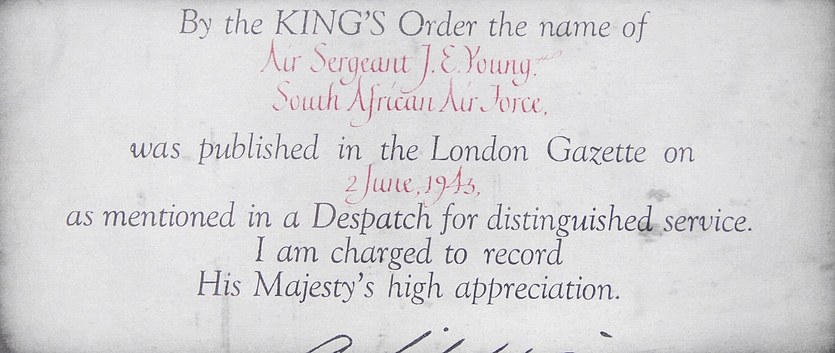 By the KING'S Order the name of
Air Sergeant J. E. Young,
South African Air Force,
was published in the London Gazette on
2 June, 1943,
as mentioned in a Despatch for distinguished service.
I am charged to record
His Majesty's high appreciation.